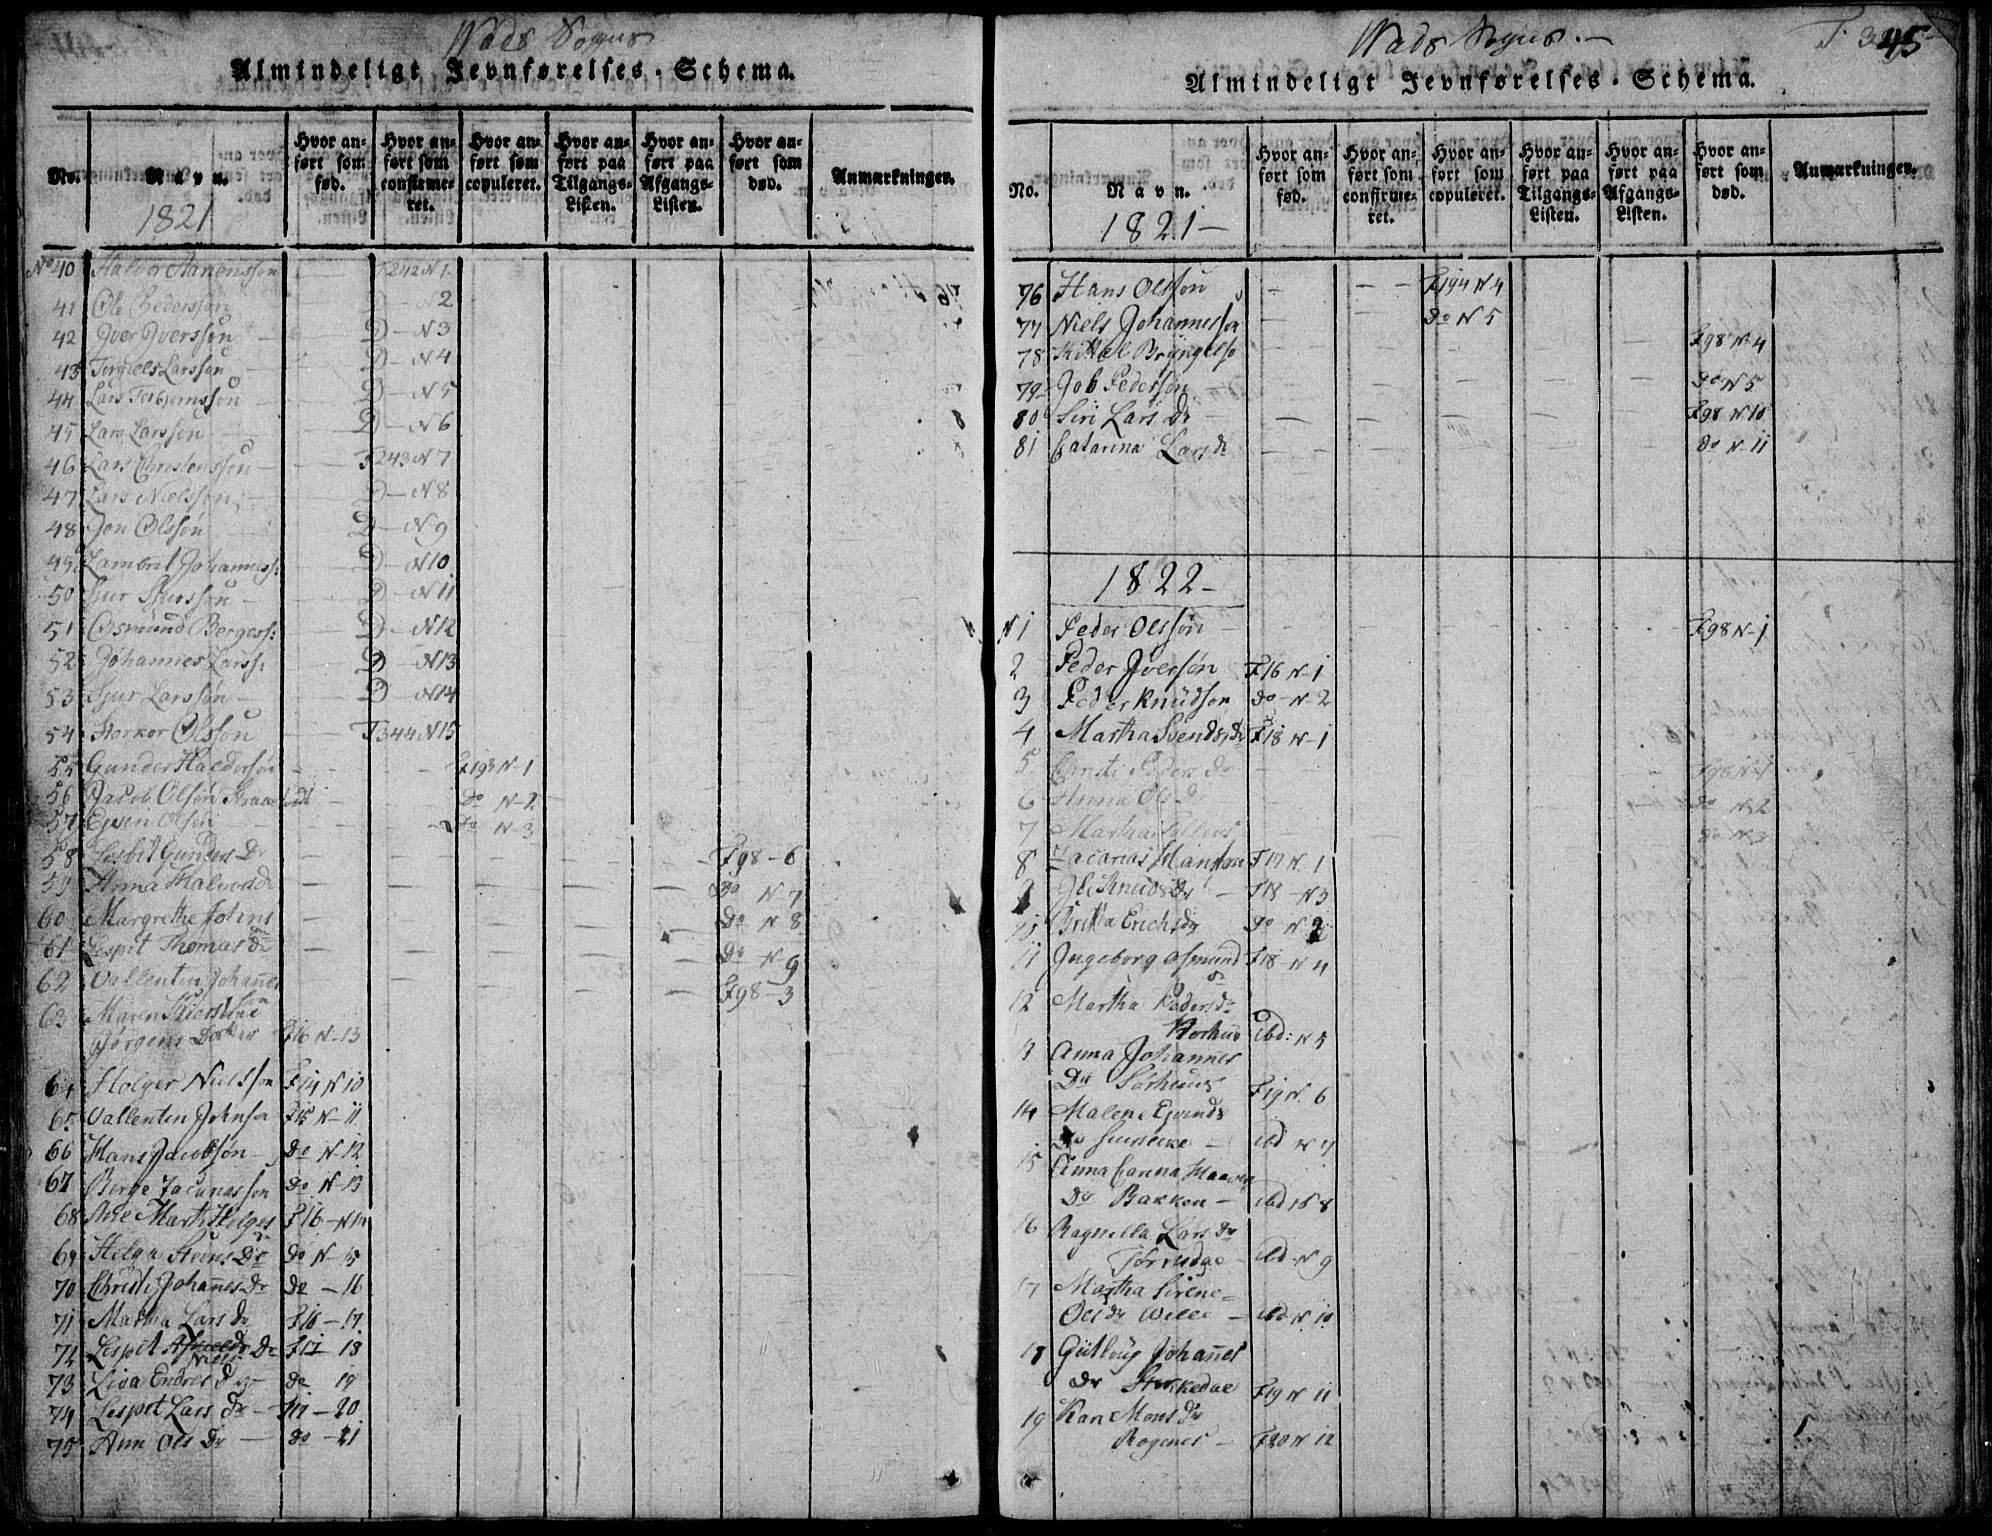 Wads Sogns
Almindeligt Jevnførelses-Schema.
No.
Navn.
1821
Hvor anført som fød.
Hvor anført som confirmeret.
Hvor anført som copuleret.
Hvor anført paa Tilgangs-Listen.
Hvor anført paa Afgangs-Listen.
Hvor anført som død.
Anmærkninger.
No 40 Halvor Aanensson F 242 N 1
41 Ole Pedersson D — N 2
42 Iver Iversson D — N 3
43 Torgiels Larssøn D — N 4
44 Lars Torbjørnssøn D — N 5
45 Lars Larssøn D — N 6
46 Lars Christenssøn F 243 N 7
47 Lars Nielssøn D — N 8
48 Jon Olssøn D — N 9
49 Lambret Johanness: D — N 10
50 Siur Siurssøn D — N 11
51 Osmund Bergess: D — N 12
52 Johannes Larss: D — N 13
53 Siur Larssøn D — N 14
54 Storkor Olssøn F 344 N 15
55 Gunder Haldorsøn F 193 N-1
56 Jacob Olsøn Do N-2
57 Ejven Olsøn Do N-3
58 Lisbit Gunders Dr F 98 - 6
59 Anna Halvors dr Do N 7
60 Margrethe Johns Do N 8
61 Lespit Thomas Dr Do N-9
62 Vallentin Johañes F 98 - 3
63 Maren
Jørgens Datter F 16 N-13
64 Holger Nielsson F 14 N 10
65 Vallentin Johnsa F 15 N-11
66 Hans Jacobsøn Do N-12
67 Børge Zacariasson do N-13
68 Ane Marth Holges F 16 - N 14
69 Helga Steens Dr do N-15
70 Christi Johañes Dr do - 16
71 Martha Lars dr F 16 - 17
72 Lespet Niels Dr F 17 18
73 Lisa Endres Dr do 19
74 Lespet Lars Dr F 17 - 20
75 Ann Ols Dr do - 21
Wads Sogns.
45
Almindeligt Jevnførelses-Schema.
No.
Navn.
1821
Hvor anført som fød.
Hvor anført som confirmeret.
Hvor anført som copuleret.
Hvor anført paa Tilgangs-Listen.
Hvor anført paa Afgangs-Listen.
Hvor anført som død.
Anmærkninger.
76 Hans Olssøn F 194 N 4
77 Niels Johannessøn Do N 5
78 Kittel Bryngelsø F 98 N 4
79 Job Pedersøn Do N 5
80 Siri Lars Dr F 98 N 10
81 Catarina Lars dr do N-11
1822
N 1 Peder Olssøn F 98 N-1
2 Peder Iversøn F 16 N-1
3 Peder Knudson do N-2
4 Martha Svends, dr F 18 N-1
5 Christi Peders Dr F 98 N-1
6 Anna Ols Dr do N 2
7 Martha do N 3
8 Zacarias Hansøn F 17 N. 1
9 Knuds Dr F 18 - N 3
10 Britta Erichs dr Do N 2
11 Ingeborg Osmund F 18 - N 4
dr
12 Martha Peders dr
ibd: N 5
Anna Johannes
Dr F 19 N. 6
14 Malene Ejvinds
dr ibd N 7
15 Anna
Dr Bakken ibd N 8
16 Ragnilla Lars Dr
ibd N 9
17 Martha Sirene
Ols dr Wille ibd N 10
18 Gütlaug Johañes
dr F 19 N 11
19 Kari Mons Dr
F 20 N 12